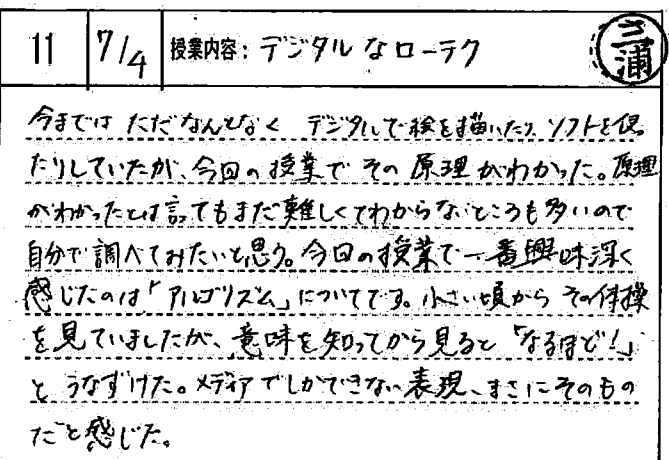 11 7/4 授業内容: デジタルなローテク 三浦
今まではただなんとなく デジタルで絵を描いたり、ソフトを使っ
たりしていたが、今回の授業でその原理がわかった。原理
がわかったとは言ってもまだ難しくてわからないところも多いので
自分で調べてみたいと思う。今回の授業で一番興味深く
感じたのは「アルゴリズム」についてです。小さい頃からその体操
を見ていましたが、意味を知ってから見ると「なるほど!」
とうなずけた。メディアでしかできない表現、まさにそのもの
だと感じた。